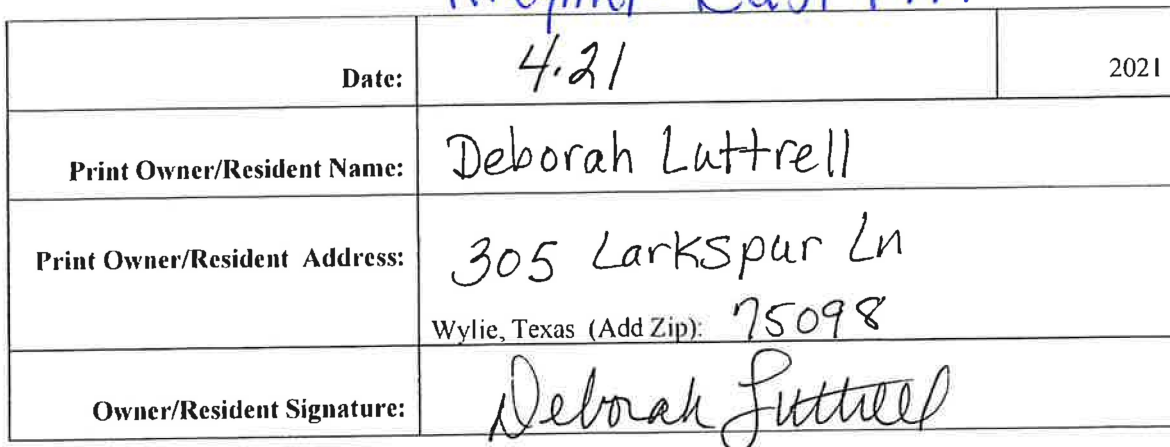 Date: 4.21 2021
Print Owner/Resident Name: Deborah Luttrell
Print Owner/Resident Address: 305 Larkspur Ln
Wylie, Texas (Add Zip): 75098
Owner/Resident Signature: Deborah Luttrell